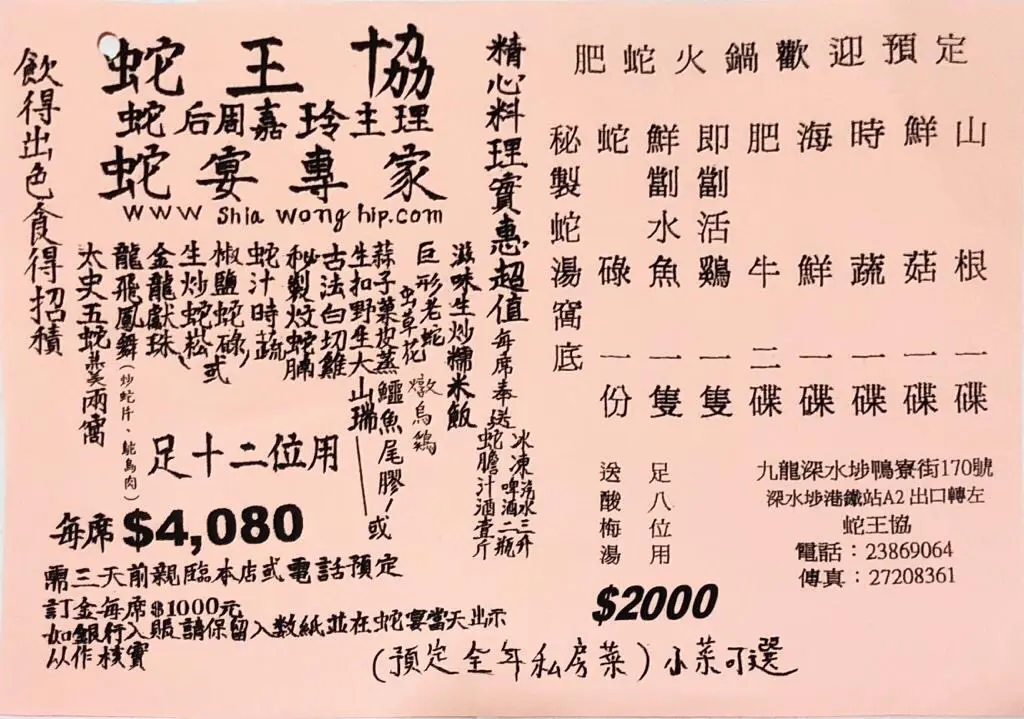 蛇王協
蛇后周嘉玲主理
蛇宴專家
www shia wong hip.com
飲得出色食得招積
精心料理實惠超值
每席奉送
冰凍汽水三升
啤酒二瓶
蛇膽汁酒壹斤
太史五蛇羹兩窩
龍飛鳳舞(炒蛇片、鴕鳥肉)
金龍獻珠
生炒蛇松
椒鹽蛇碌/或
蛇汁時蔬
秘製炆蛇腩
古法白切雞
生扣野生大山瑞
蒜子菜皮蒸鱷魚尾膠/或
巨形老蛇
虫草花燉烏鷄
滋味生炒糯米飯
足十二位用
每席$4,080
需三天前親臨本店或電話預定
訂金每席$1000元
如銀行入賬請保留入數紙並在蛇宴當天出示
以作核實
肥蛇火鍋歡迎預定
秘製蛇湯窩底
蛇碌一份
鮮劏水魚一隻
即劏活鷄一隻
肥牛二碟
海鮮一碟
時蔬一碟
鮮菇一碟
山根一碟
足八位用
送酸梅湯
$2000
九龍深水埗鴨寮街170號
深水埗港鐵站A2 出口轉左
蛇王協
電話：23869064
傳真：27208361
(預定全年私房菜)小菜可選